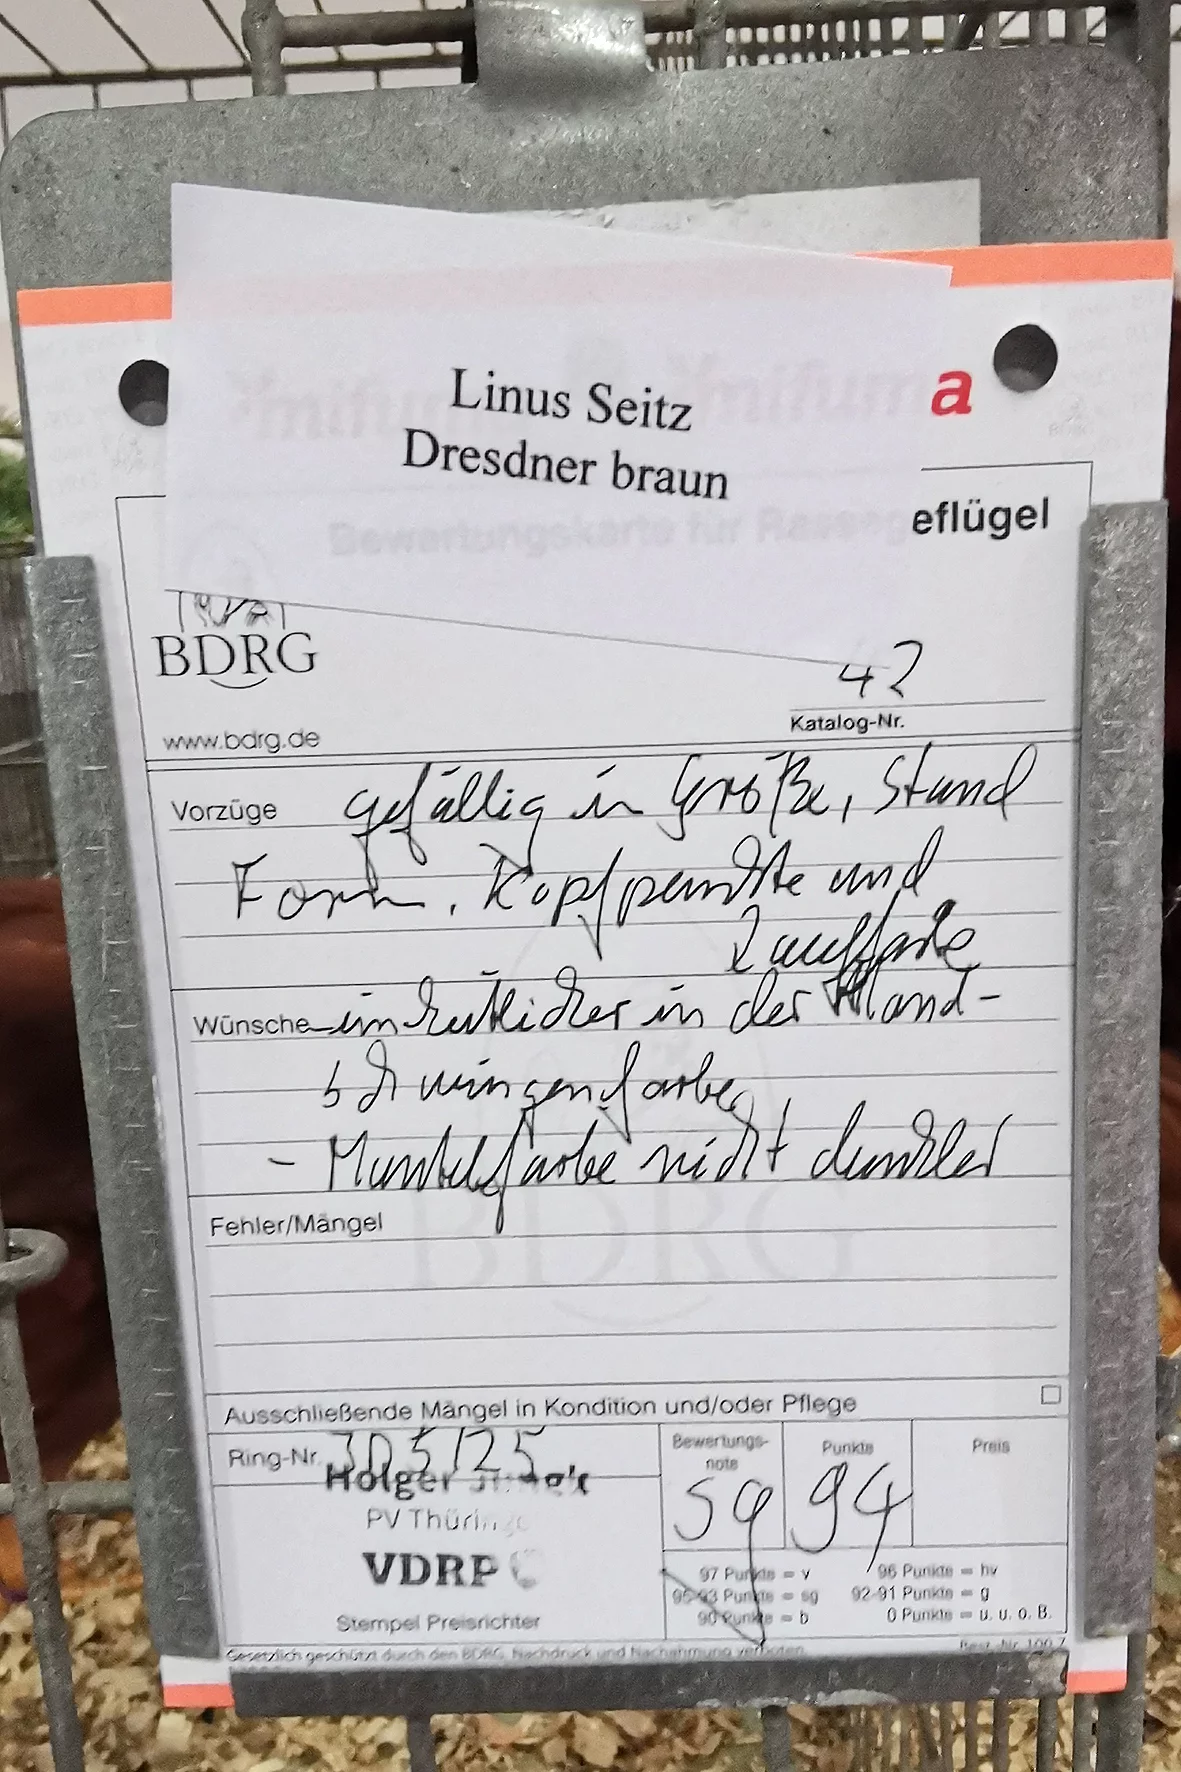 a
Linus Seitz
Dresdner braun
eflügel
BDRG
42
Katalog-Nr.
www.bdrg.de
Vorzüge gefällig in Größe, Stand
Form, Kopfpunkte und
Lauffarbe
Wünsche einheitlicher in der Hand-
schwingenfarbe
- Mantelfarbe nicht dunkler
Fehler/Mängel
BDRG
Ausschließende Mängel in Kondition und/oder Pflege
Ring-Nr. 305/25
Holger
PV Thürin
VDRP
Stempel Preisrichter
Bewertungs-
note
sg
Punkte
94
Preis
97 Punkte = v 96 Punkte = hv
95-93 Punkte = sg 92-91 Punkte = g
90 Punkte = b 0 Punkte = u. u. o. B.
Gesetzlich geschützt durch den BDRG, Nachdruck und Nachahmung verboten.